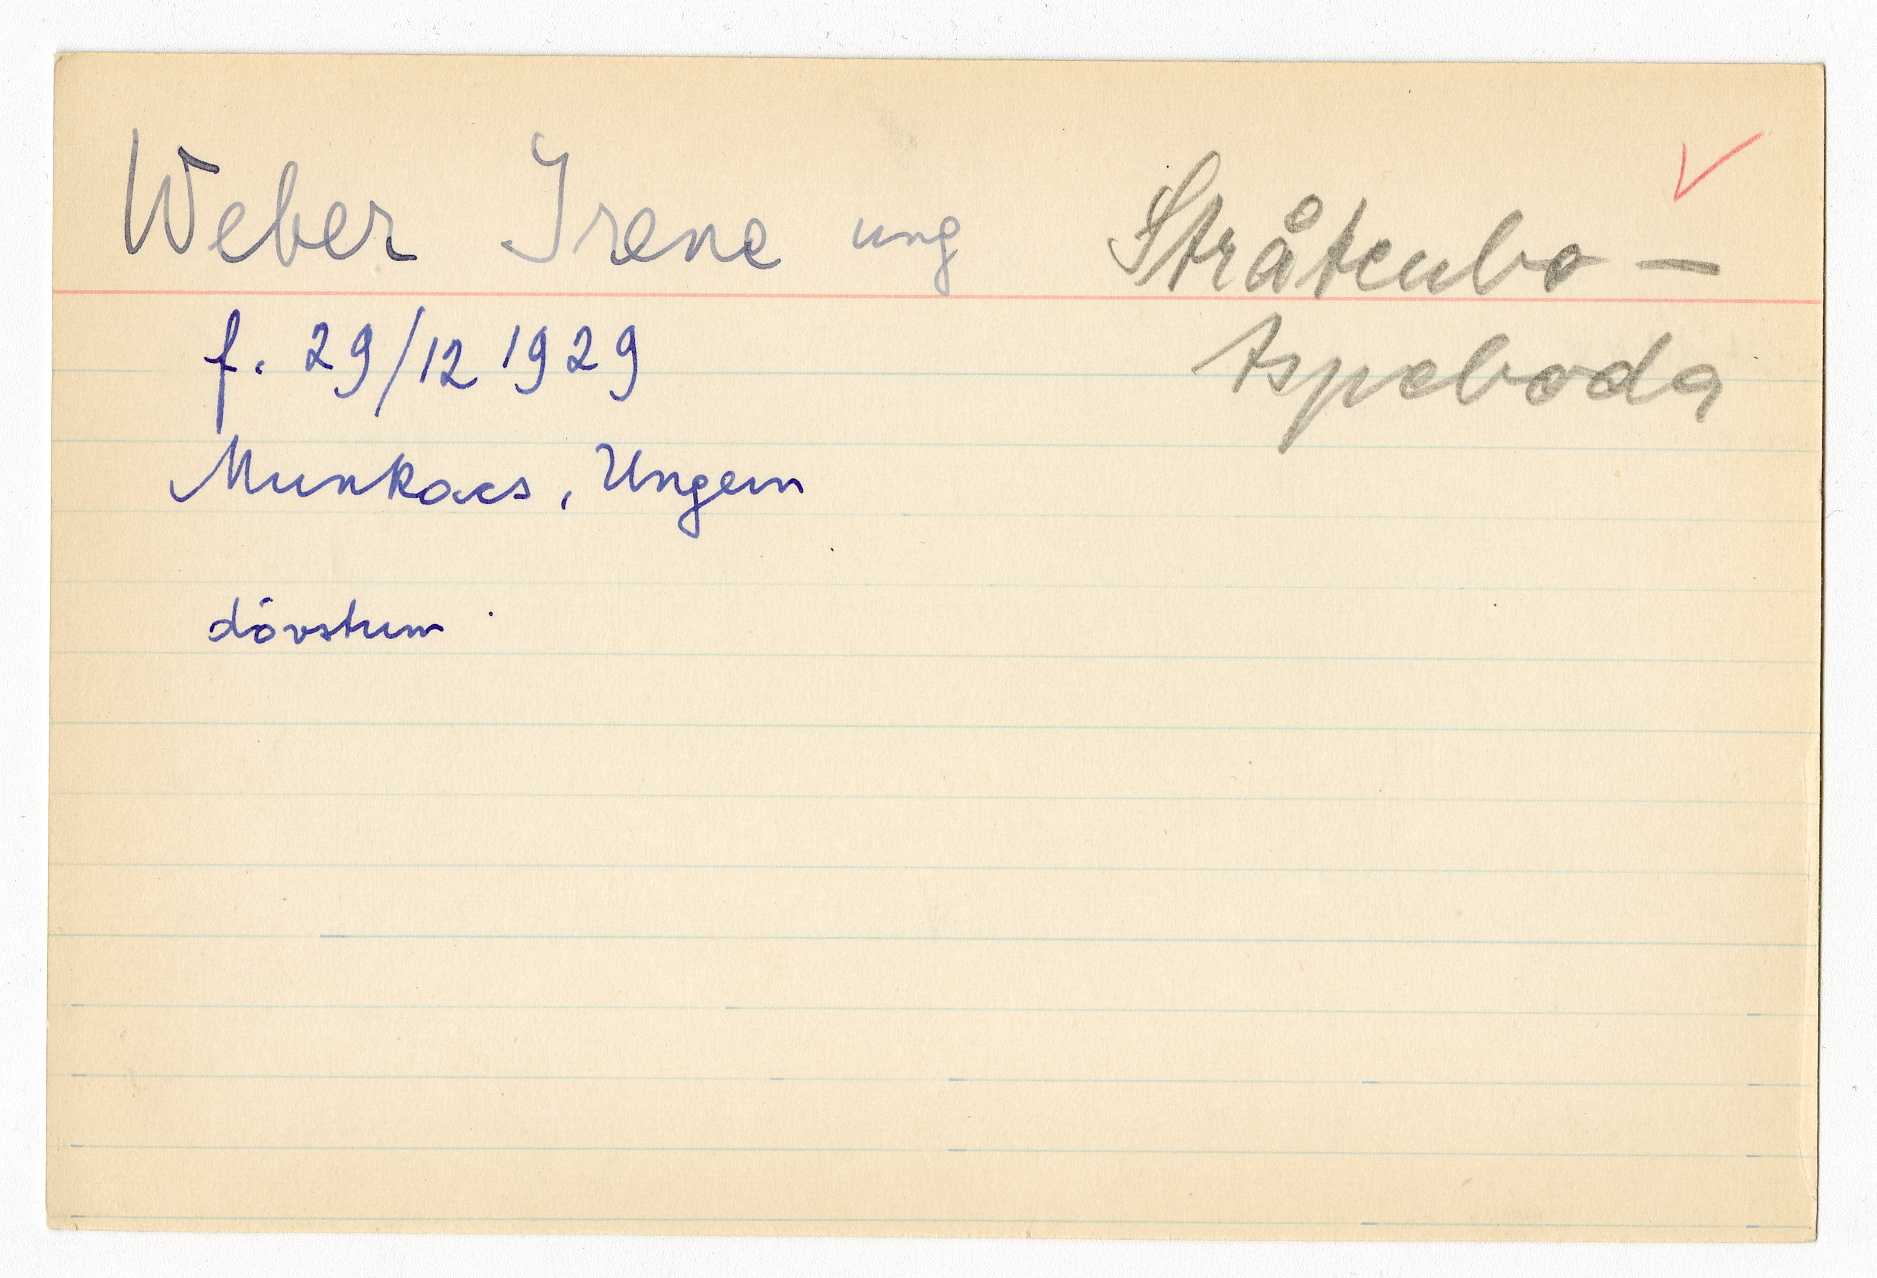 Weber Irene ung Stråtenbo –
Aspeboda
f. 29/12 1929
Munkacs, Ungern
dövstum